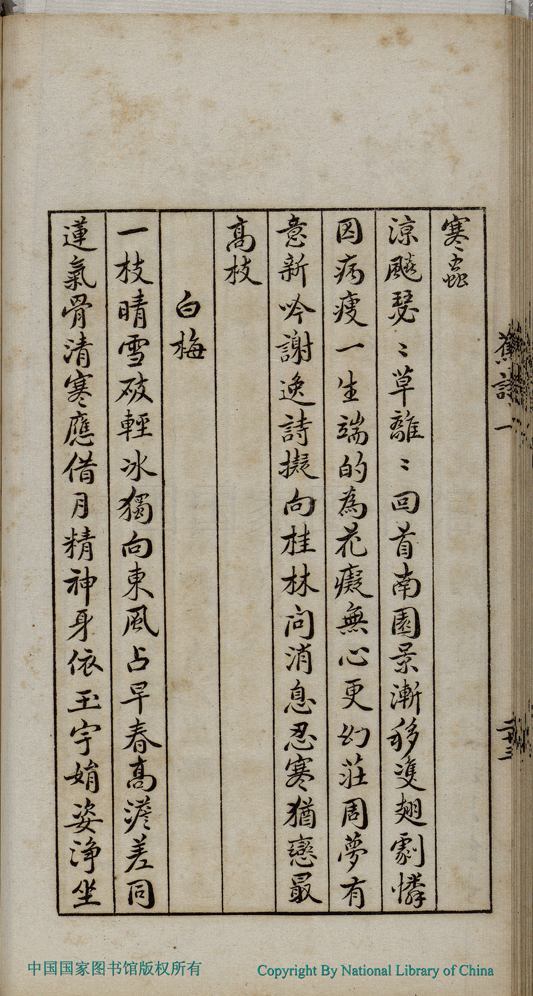 寒蟲
涼飈瑟〻草離〻回首南園景漸移雙翅劇憐
因病瘦一生端的為花癡無心更幻莊周夢有
意新吟謝逸詩擬向桂林問消息忍寒猶戀最
高枝
白梅
一枝晴雪破輕冰獨向東風占早春高澹差同
蓮氣骨清寒應借月精神身依玉宇娟姿淨坐
詩一
二十三
中国国家图书馆版权所有
Copyright By National Library of China